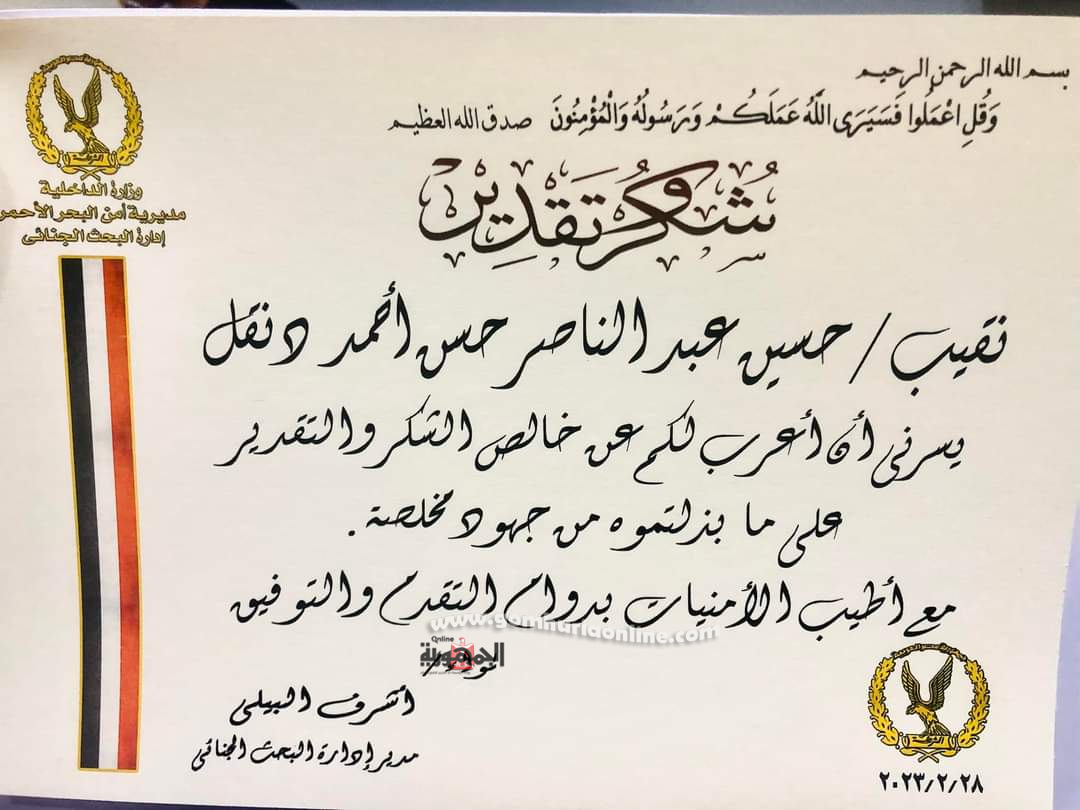 بسم الله الرحمن الرحيم
وَقُلِ اعْمَلُوا فَسَيَرَى اللَّهُ عَمَلَكُمْ وَرَسُولُهُ وَالْمُؤْمِنُونَ صدق الله العظيم
وزارة الداخلية
مديرية أمن البحر الأحمر
إدارة البحث الجنائى
شكر وتقدير
نقيب / حسين عبد الناصر حسن أحمد دنقل
يسرنى أن أعرب لكم عن خالص الشكر والتقدير
على ما بذلتموه من جهود مخلصة .
مع أطيب الأمنيات بدوام التقدم والتوفيق
www.gomhuriaonline.com
Online
الجمهورية
لواء /
أشرف البيلى
مدير إدارة البحث الجنائى
الشرطة
٢٠٢٣/٢/٢٨